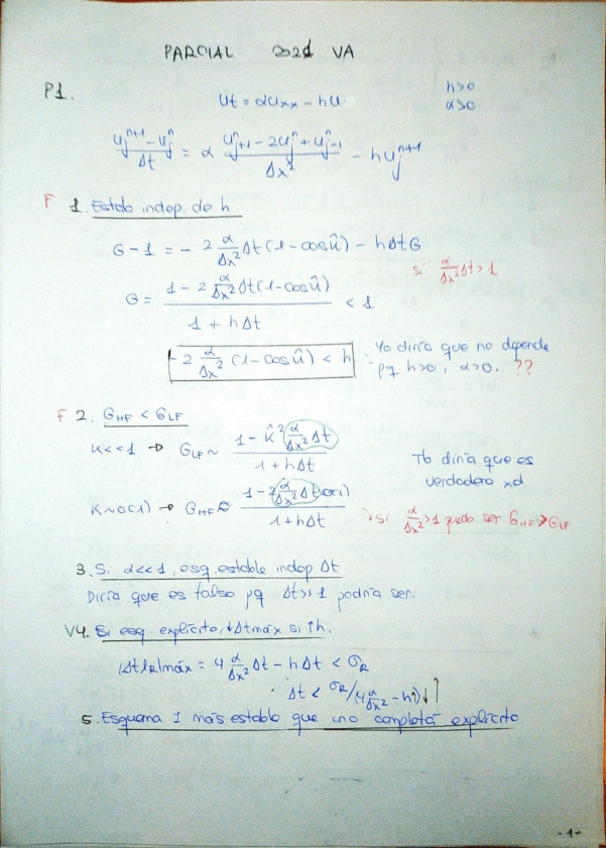 PARCIAL 2021 VA
P1. Ut = αUxx - hU h>0
α>0
(U_j^{n+1} - U_j^n)/Δt = α (U_{j+1}^n - 2U_j^n + U_{j-1}^n)/Δx² - hU_j^{n+1}
F 1. Estab indep. de h
G - 1 = - 2 α/Δx² Δt (1-cosû) - hΔtG
Si α/Δx² Δt > 1
G = (1 - 2 α/Δx² Δt (1-cosû))/(1 + hΔt) < 1
- 2 α/Δx² (1-cosû) < h
Yo diría que no depende
pq h>0, α>0. ??
F 2. G_HF < G_LF
K<<1 → G_LF ~ (1 - k̂² α/Δx² Δt)/(1 + hΔt)
Tb diría que es
verdadero xd
K~O(1) → G_HF ≈ (1 - 2 α/Δx² Δt O(1))/(1 + hΔt)
Si α/Δx² > 1 puede ser G_HF > G_LF
3. Si α<<1, esq. estable indep Δt
Diría que es falso pq Δt>>1 podría ser.
V4. Si esq. explícito, ↓Δtmáx si ↑h.
|Δt λ_R|máx = 4 α/Δx² Δt - hΔt < σ_R
Δt < σ_R/(4 α/Δx² - h) ↓ ↑
5. Esquema 1 más estable que uno completá explícito
- 1 -